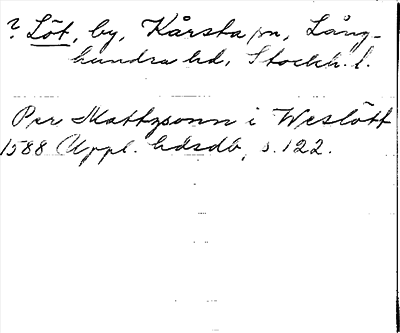 ? Löt, by, Kårsta sn, Lång-
hundra hd, Stockh. l.
Per Mattzsonn i Weslött
1588 Uppl. hdsdb, s. 122.